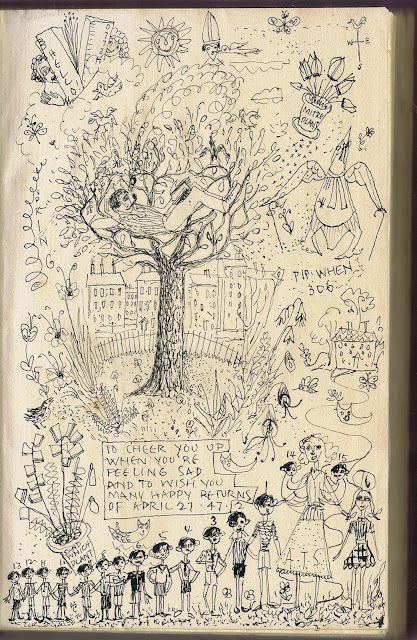 W E
MITRE
PLANT
PIP WHEN
306
TO CHEER YOU UP
WHEN YOU'RE
FEELING SAD
AND TO WISH YOU
MANY HAPPY RETURNS
OF APRIL 27 · 47
14 15
13
6 5 4 3